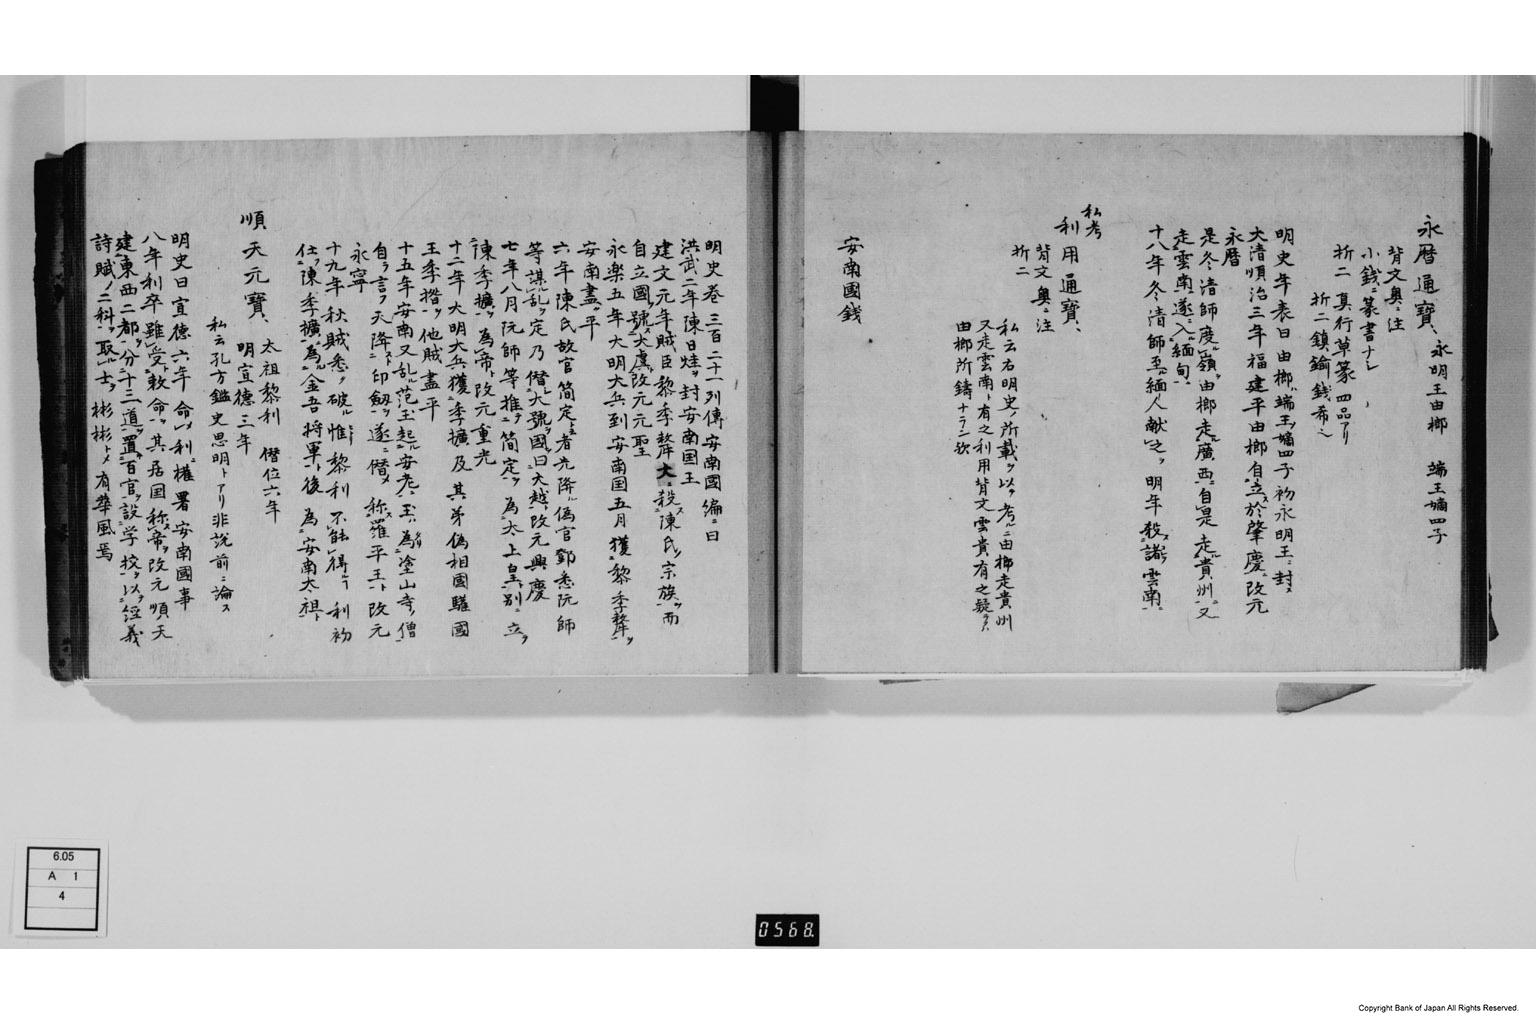 永暦通寳、永明王由榔 端王嫡四子
背文奥ニ注
小錢ニ篆書ナシ
折二 真行草篆 四品アリ
折二鎮鍮錢希也
明史年表曰由榔ハ端王ノ嫡四子初永明王ニ封ス
大清順治三年福建平由榔自立ス於肇慶ニ改元
永暦
是冬清師度ル嶺ヲ由榔走ル廣西ニ自是走ル貴州ニ又
走雲南ニ遂ニ入緬甸ニ
十八年冬清師至ル緬人献之ヲ明年殺ス諸ヲ雲南ニ
私考
利用通寳、
背文奥ニ注
折二
私云右明史ノ所載ヲ以テ考ルニ由榔走貴州
又走雲南ト有之利用背文雲貴有之疑ラクハ
由榔所鋳ナラン欤
安南國錢
明史巻三百二十一列傳安南國編ニ曰
洪武二年陳日煃ヲ封安南国王
建文元年賊臣黎季犛大ニ殺ス陳氏ノ宗族ヲ而
自立國ヲ號ス大虞ト改元元聖
永楽五年大明大兵到安南国五月獲黎季犛ヲ
安南盡ク平
六年陳氏故官簡定ト云者先降ル偽官鄧悉阮師
等謀ル乱ヲ定乃僭大號ヲ國曰大越ト改元興慶
七年八月阮師等推テ簡定ヲ為太上皇ト別ニ立ツ
陳季擴ヲ為帝ト改元重光
十二年大明大兵獲季擴及其弟偽相國驩國
王季揝ヲ他賊盡平
十五年安南又乱ル范玉起ル安老ニ玉ハ為塗山寺ノ僧
自ラ言フ天降ス印劔ヲ遂ニ僭メ称羅平王ト改元
永寧
十九年秋賊悉ク破ル惟黎利不能得ルヿ利初
仕ヘ陳季擴ニ為ル金吾将軍ト後為ニ安南太祖ト
順天元寳、太祖黎利 僭位六年
明宣德三年
私云孔方鑑史思明トアリ非說前ニ論ス
明史曰宣德六年命メ利ニ權署安南國事
八年利卒雖受ト敕命ヲ其居国称ス帝ヲ改元順天
建東西二都ヲ分十三道ヲ置百官ヲ設学校ヲ以テ經義
詩賦ノ二科ヲ取ル士ヲ彬彬トメ有華風焉
6.05
A 1
4
0568.
Copyright Bank of Japan All Rights Reserved.